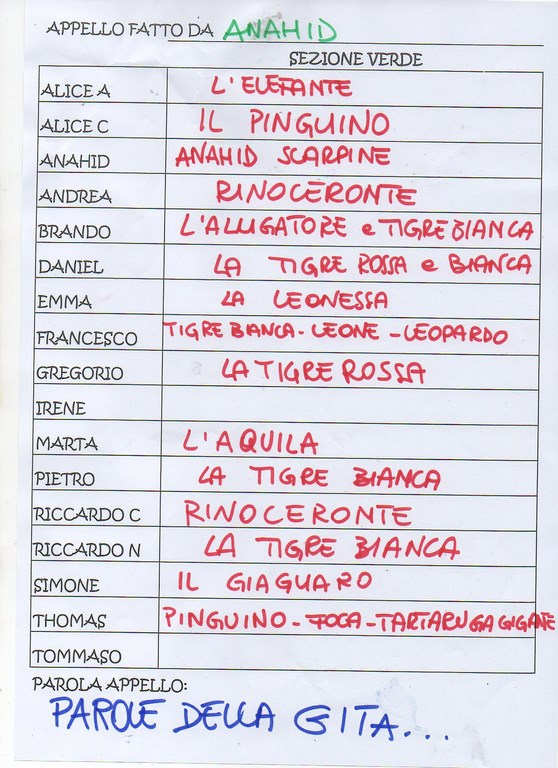 APPELLO FATTO DA ANAHID
SEZIONE VERDE
ALICE A L'ELEFANTE
ALICE C IL PINGUINO
ANAHID ANAHID SCARPINE
ANDREA RINOCERONTE
BRANDO L'ALLIGATORE e TIGRE BIANCA
DANIEL LA TIGRE ROSSA e BIANCA
EMMA LA LEONESSA
FRANCESCO TIGRE BIANCA - LEONE - LEOPARDO
GREGORIO LA TIGRE ROSSA
IRENE
MARTA L'AQUILA
PIETRO LA TIGRE BIANCA
RICCARDO C RINOCERONTE
RICCARDO N LA TIGRE BIANCA
SIMONE IL GIAGUARO
THOMAS PINGUINO - FOCA - TARTARUGA GIGANTE
TOMMASO
PAROLA APPELLO:
PAROLE DELLA GITA...